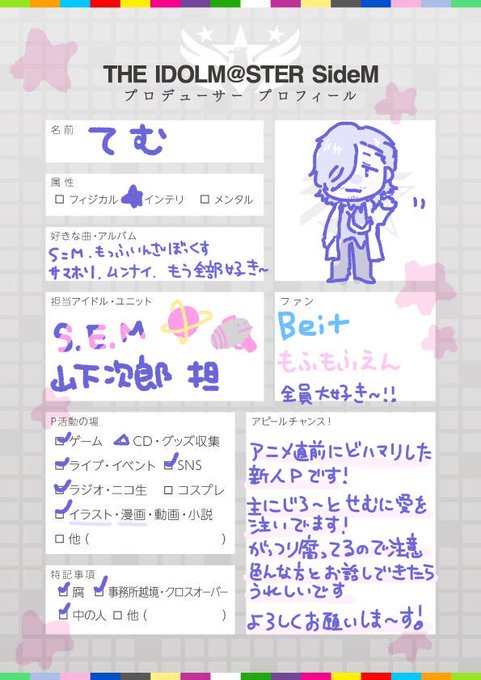 THE IDOLM@STER SideM
プロデューサー プロフィール
名前
てむ
属性
フィジカル
インテリ
メンタル
好きな曲・アルバム
S=M.もっふいんざぼっくす
サマホリ.ムンナイ.もう全部好き〜
担当アイドル・ユニット
S.E.M
山下次郎 担
ファン
Beit
もふもふえん
全員大好き〜!!
P活動の場
ゲーム
CD・グッズ収集
ライブ・イベント
SNS
ラジオ・ニコ生
コスプレ
イラスト・漫画・動画・小説
他( )
特記事項
腐
事務所越境・クロスオーバー
中の人
他( )
アピールチャンス!
アニメ直前にどハマりした
新人Pです!
主にじろ〜とせむに愛を
注いでます!
がっつり腐ってるので注意
色んな方とお話しできたら
うれしいです
よろしくお願いしま〜す!